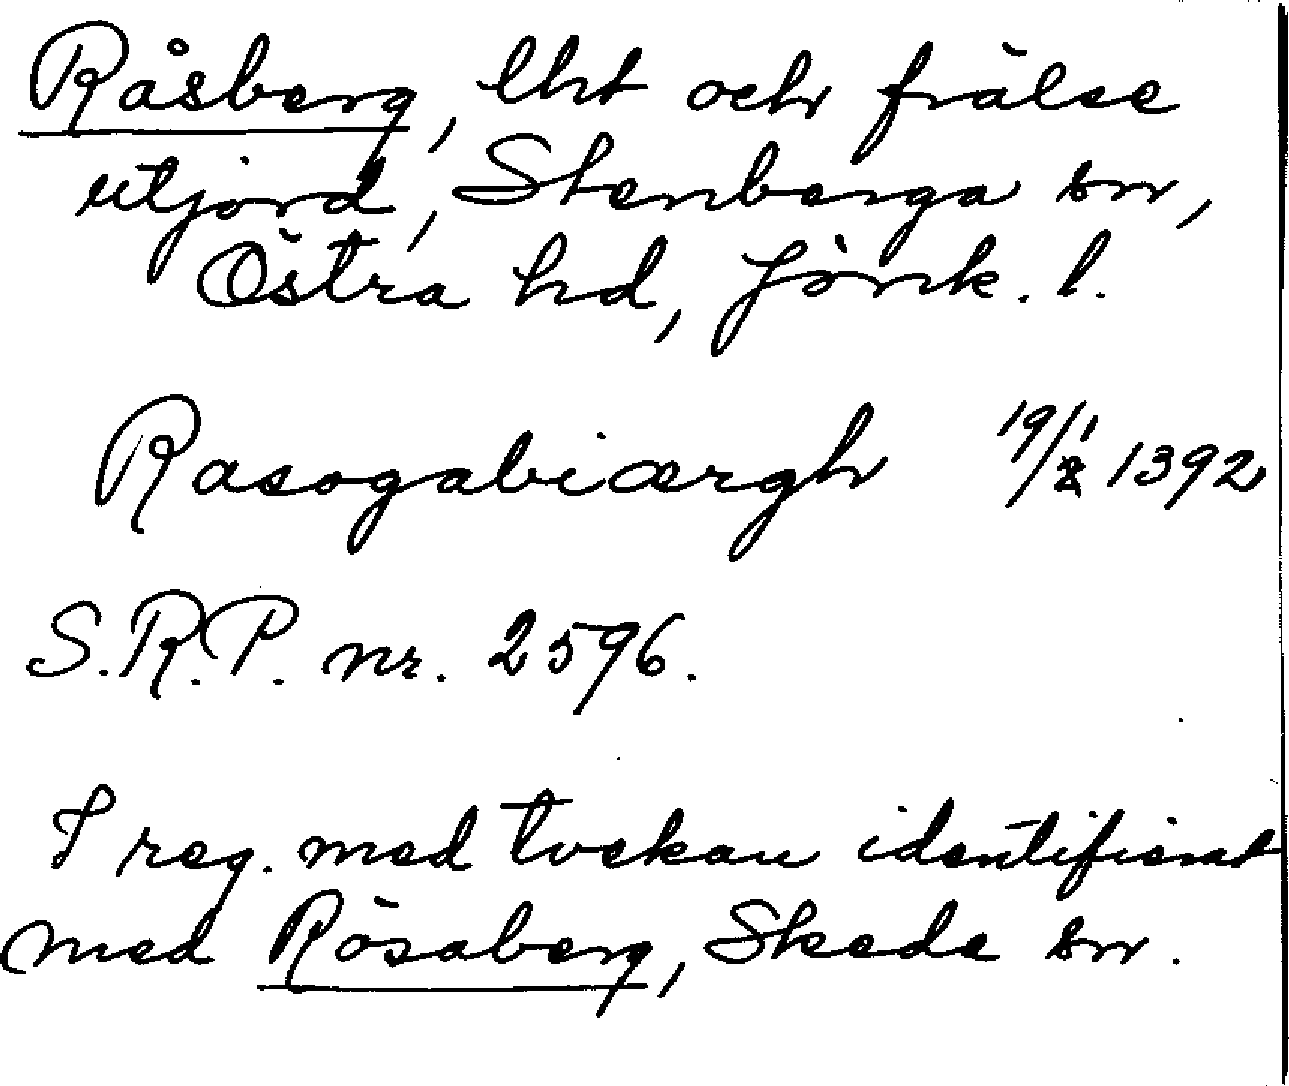 Råsberg, lht och frälse
utjord, Stenberga sn,
Östra hd, Jönk. l.
Rasogabiærgh 19/1 1392
S.R.P. nr. 2596.
I reg. med tvekan identifierat
med Rösaberg, Skede sn.